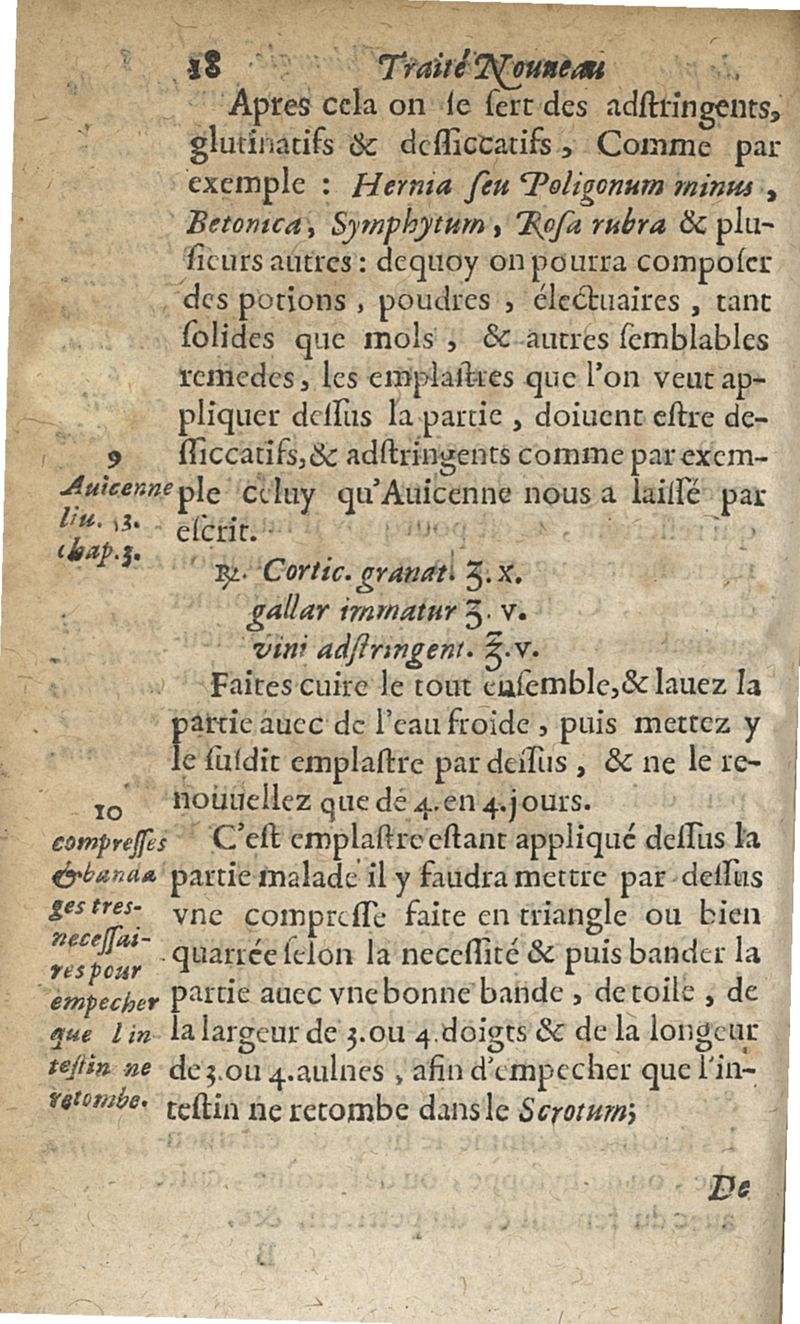 18 Traité Nouueau
Apres cela on se sert des adstringents,
glutinatifs & dessiccatifs, Comme par
exemple : Hernia seu Poligonum minus,
Betonica, Symphytum, Rosa rubra & plu-
sieurs autres : dequoy on pourra composer
des potions, poudres, électuaires, tant
solides que mols, & autres semblables
remedes, les emplastres que l'on veut ap-
pliquer dessus la partie, doiuent estre de-
ssiccatifs, & adstringents comme par exem-
ple celuy qu'Auicenne nous a laissé par
escrit.
9
Auicenne
liu. 13.
chap. 3.
℞. Cortic. granat. ℥. x.
gallar immatur ℥. v.
vini adstringent. ℥. v.
Faites cuire le tout ensemble, & lauez la
partie auec de l'eau froide, puis mettez y
le susdit emplastre par dessus, & ne le re-
nouuellez que de 4. en 4. jours.
C'est emplastre estant appliqué dessus la
partie malade il y faudra mettre par dessus
vne compresse faite en triangle ou bien
quarrée selon la necessité & puis bander la
partie auec vne bonne bande, de toile, de
la largeur de 3. ou 4. doigts & de la longeur
de 3. ou 4. aulnes, afin d'empecher que l'in-
testin ne retombe dans le Scrotum;
10
compresses
& banda
ges tres-
necessai-
res pour
empecher
que l in
testin ne
retombe.
De